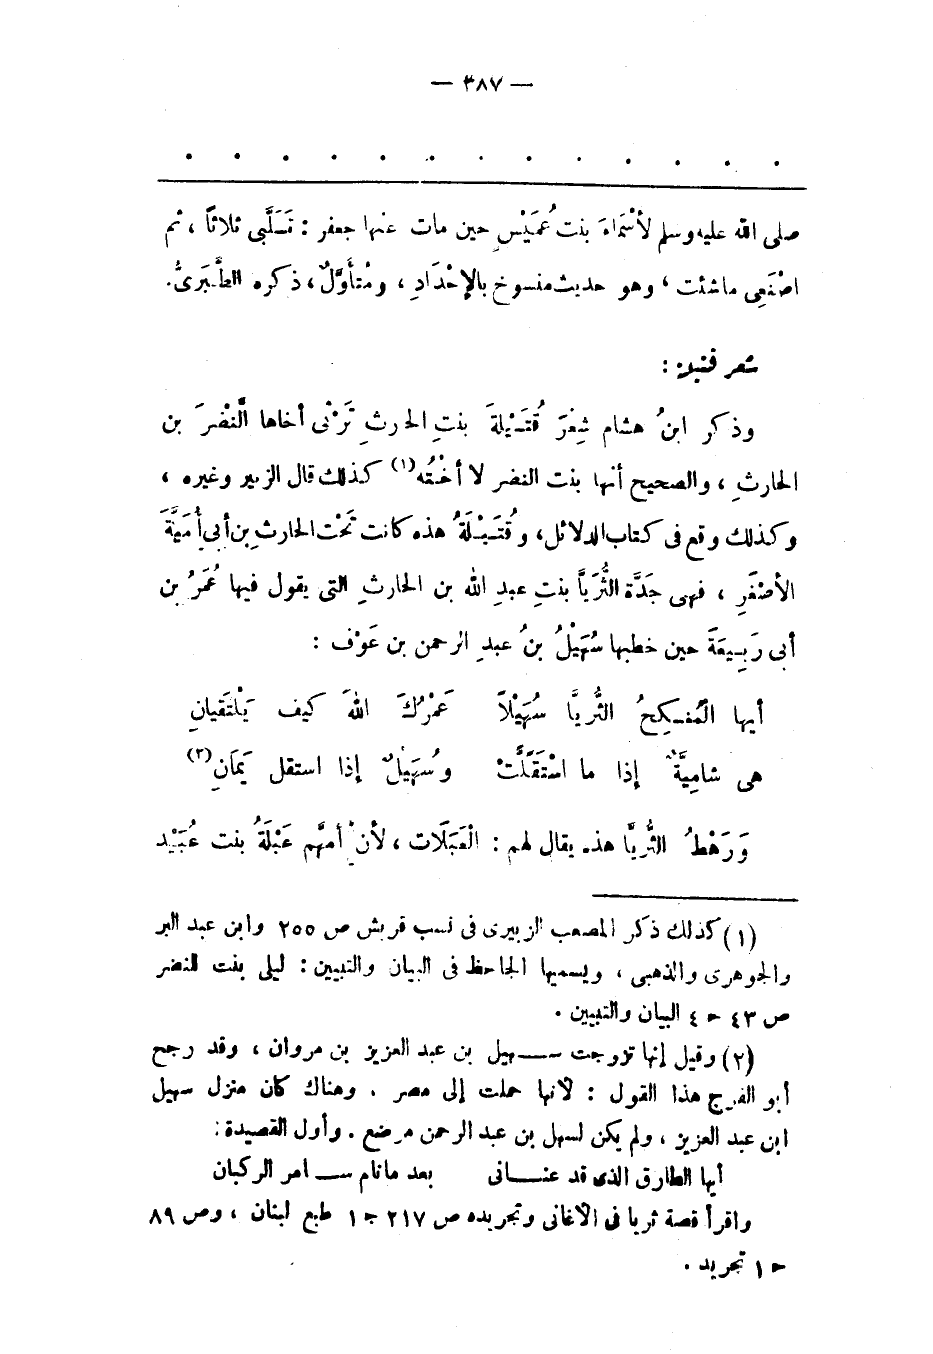 — ٣٨٧ —
. . . . . . . . . . . . .
صلى الله عليه وسلم لأَسْمَاءَ بنت عُمَيْسٍ حين مات عنها جعفر : تَسَلَّبى ثلاثاً ، ثم
اصْنَعِى ما شئت ، وهو حديث منسوخ بالإِحْدَادِ ، ومُتأَوَّلٌ ، ذكره الطَّبَرىُّ .
شعر قتيلة :
وذكر ابنُ هشام شِعْرَ قُتَيْلةَ بنتِ الحارثِ تَرْثى أخاها النَّضْرَ بن
الحارثِ ، والصحيح أنها بنت النضر لا أُخْتُه (١) كذلك قال الزبير وغيره ،
وكذلك وقع فى كتاب الدلائل ، وقُتَيْلَةُ هذه كانت تَحْت الحارث بن أبى أُمَيَّةَ
الأصْغَرِ ، فهى جَدَّة الثُّرَيَّا بنتِ عبدِ الله بن الحارثِ التى يقول فيها عُمَرُ بن
أبى رَبِيعَةَ حين خطبها سُهَيْلُ بنُ عبدِ الرحمن بن عَوْف :
أيها الْمُنْكِحُ الثريَّا سُهَيْلاً عَمْرُكَ اللهَ كيف يَلْتَقيانِ
هى شامِيَّةٌ إذا ما اسْتَقَلَّتْ وسُهَيلٌ إذا استقل يَمَانِ (٢)
وَرَهْطُ الثُّريَّا هذه يقال لهم : الْعَبَلَات ، لأن أمهَّم عَبْلَةُ بنت عُبَيْد
(١) كذلك ذكر المصعب الزبيرى فى نسب قريش ص ٢٥٥ وابن عبد البر
والجوهرى والذهبى ، ويسميها الجاحظ فى البيان والتبيين : ليلى بنت النضر
ص ٤٣ ح ٤ البيان والتبيين .
(٢) وقيل إنها تزوجت سهيل بن عبد العزيز بن مروان ، وقد رجح
أبو الفرج هذا القول : لأنها حملت إلى مصر . وهناك كان منزل سهيل
ابن عبد العزيز ، ولم يكن لسهل بن عبد الرحمن مرضع . وأول القصيدة :
أيها الطارق الذى قد عنانى بعد ما نام سامر الركبان
واقرأ قصة ثريا فى الأغانى وتجريده ص ٢١٧ ح ١ طبع لبنان ، وص ٨٩
ح ١ تجريد .